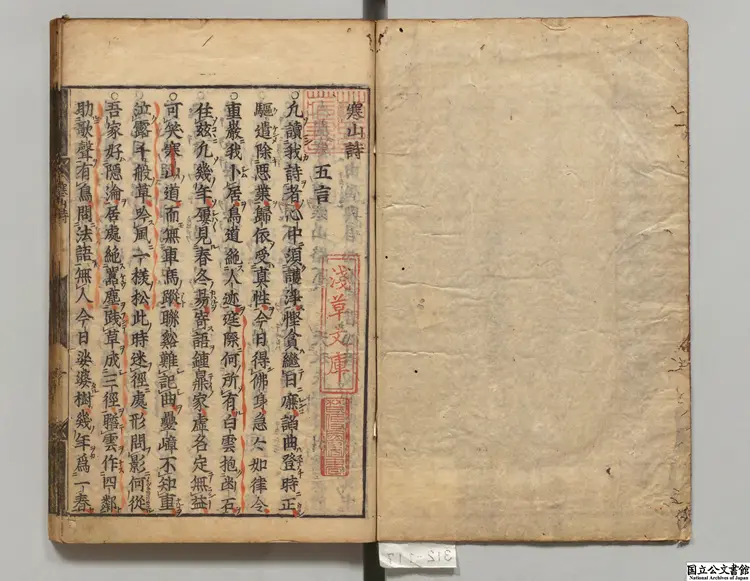 寒山詩
五言
凡讀我詩者心中須護淨慳貪繼日廉諂曲登時正
驅遣除惡業歸依受真性今日得佛身急々如律令
重巖我卜居鳥道絶人迹庭際何所有白雲抱幽石
住茲凡幾年屢見春冬易寄語鐘鼎家虛名定無益
可笑寒山道而無車馬蹤聯谿難記曲疊嶂不知重
泣露千般草吟風一樣松此時迷徑處形問影何從
吾家好隱淪居處絶囂塵踐草成三徑瞻雲作四鄰
助歌聲有鳥問法語無人今日娑婆樹幾年爲一春
淺草文庫
寒山詩
312-117
国立公文書館
National Archives of Japan